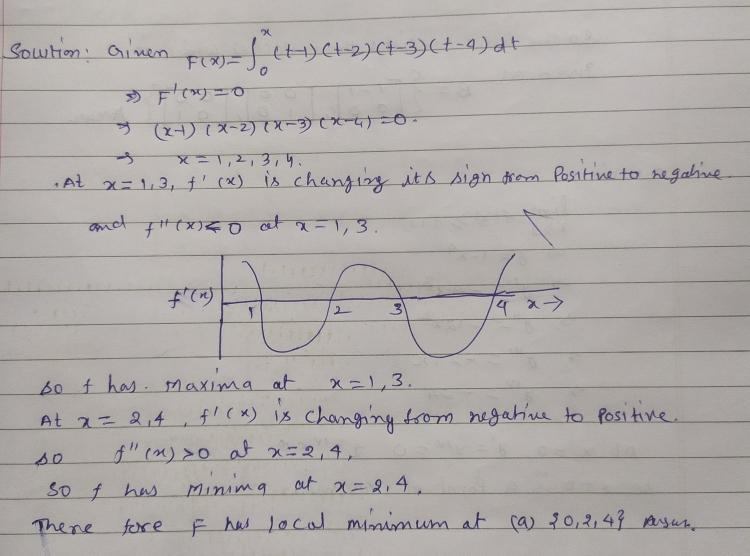 Solution: Given F(x) = ∫₀ˣ (t-1) (t-2) (t-3) (t-4) dt
⇒ F'(x) = 0
⇒ (x-1) (x-2) (x-3) (x-4) = 0.
⇒ x = 1, 2, 3, 4.
. At x = 1, 3, f'(x) is changing its sign from Positive to negative.
and f''(x) < 0 at x = 1, 3.
f'(x) 1 2 3 4 x →
so f has. maxima at x = 1, 3.
At x = 2, 4, f'(x) is changing from negative to positive.
so f''(x) > 0 at x = 2, 4,
so f has minima at x = 2, 4.
There fore F has local minimum at (a) {0, 2, 4}